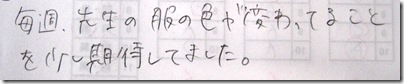 毎週、先生の服の色が変わってること
を少し期待してました。